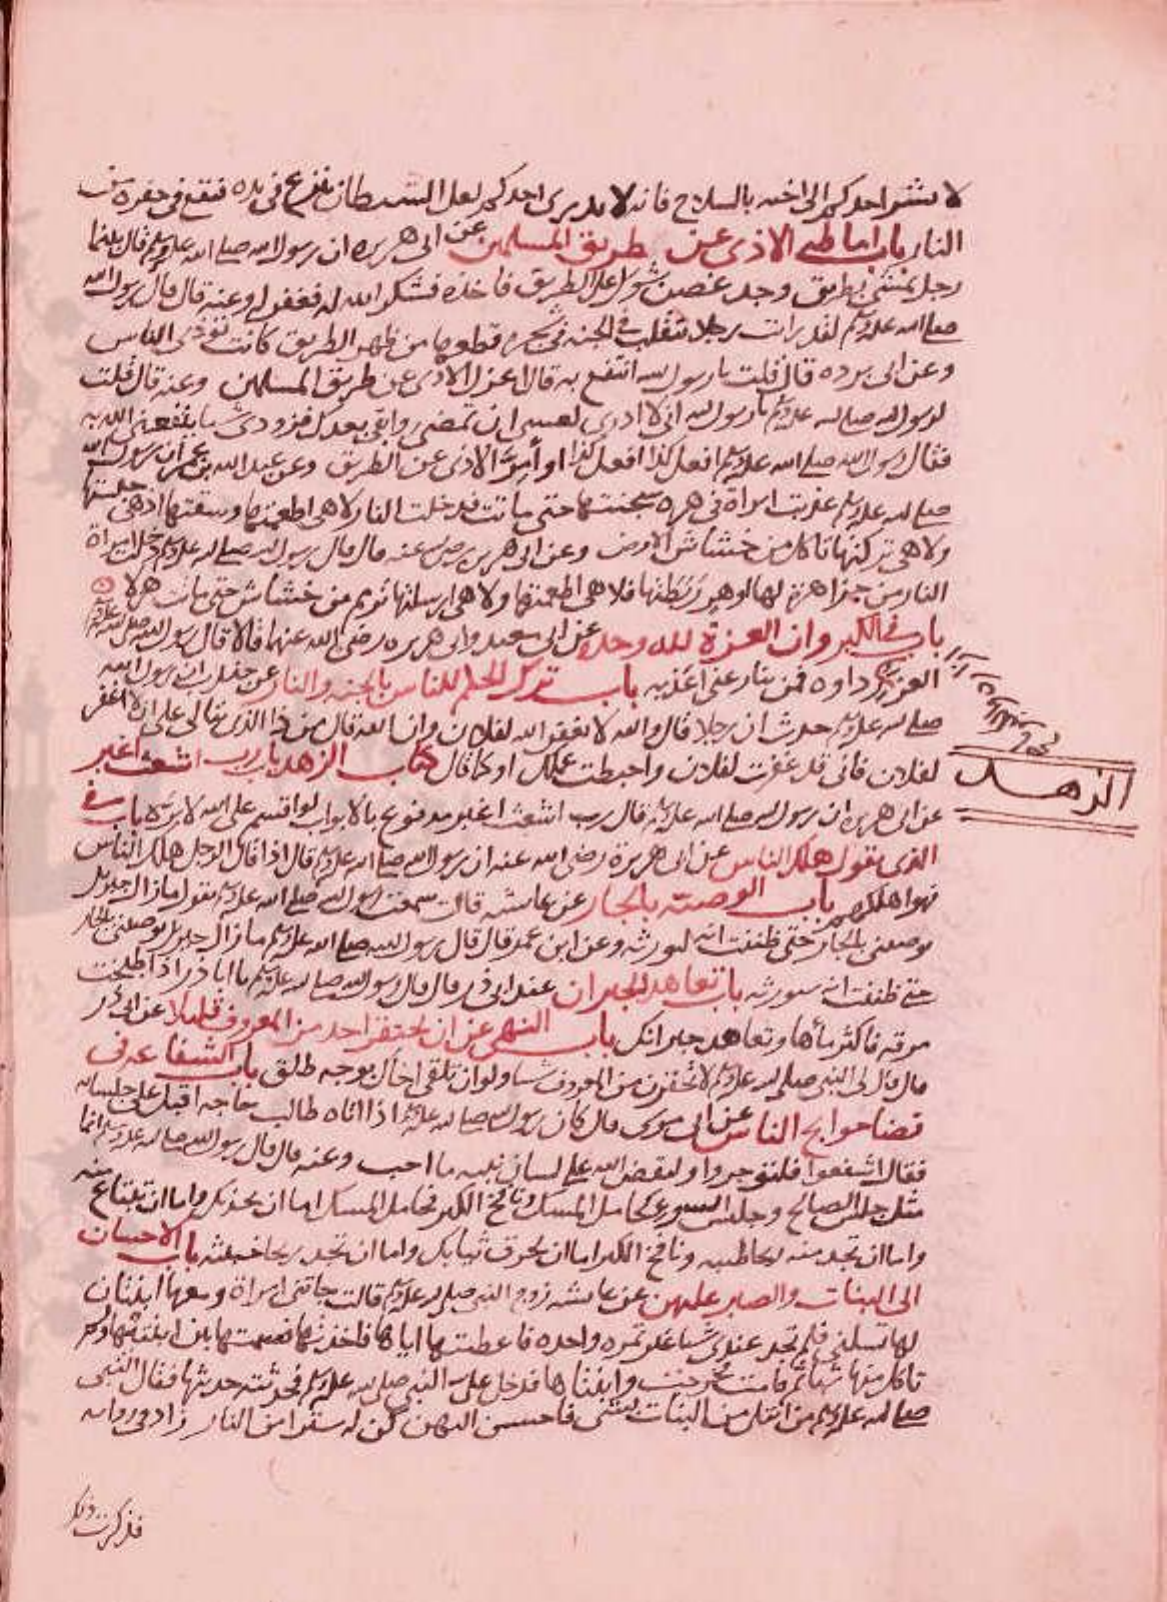 لا يشير احدكم الى اخيه بالسلاح فانه لا يدرى احدكم لعل الشيطان ينزع فى يده فيقع فى حفرة من
النار باب اماطة الاذى عن طريق المسلمين عن ابى هريره ان رسول الله صلى الله عليه وسلم قال بينما
رجل يمشى بطريق وجد غصن شوك على الطريق فاخذه فشكر الله له فغفر له وعنه قال قال رسول الله
صلى الله عليه وسلم لقد رايت رجلا يتقلب فى الجنه فى شجره قطعها من ظهر الطريق كانت تؤذى الناس
وعن ابى برزه قال قلت يا رسول الله انتفع به قال اعزل الاذى عن طريق المسلمين وعنه قال قلت
لرسول الله صلى الله عليه وسلم يا رسول الله انى لا ادرى لعسى ان تمضى وابقى بعدك فزودنى شيا ينفعنى الله به
فقال رسول الله صلى الله عليه وسلم افعل كذا افعل كذا وأمر الاذى عن الطريق وعن عبد الله بن عمر ان رسول الله
صلى الله عليه وسلم عذبت امراة فى هره سجنتها حتى ماتت فدخلت النار لا هى اطعمتها وسقتها اذ هى حبستها
ولا هى تركتها تاكل من خشاش الارض وعن ابى هريره عنه قال قال رسول الله صلى الله عليه وسلم دخلت امراة
النار من جرا هرة لها او هر ربطتها فلا هى اطعمتها ولا هى ارسلتها ترمم من خشاش حتى ماتت هزلا
باب فى الكبر وان العزة لله وحده عن ابى سعيد وابى هريره رضى الله عنهما قالا قال رسول الله صلى الله عليه
العز ازاره رداوه فمن ينازعنى اعذبه باب ترك الحكم للناس بالجنه والنار عن جندب ان رسول الله
صلى الله عليه وسلم حدث ان رجلا قال والله لا يغفر الله لفلان وان الله قال من ذا الذى يتالى على ان لا اغفر
لفلان فانى قد غفرت لفلان واحبطت عملك او كما قال كتاب الزهد باب رب اشعث اغبر
الزهد
عن ابى هريره ان رسول الله صلى الله عليه وسلم قال رب اشعث اغبر مدفوع بالابواب لو اقسم على الله لابره باب فى
الذى يقول هلك الناس عن ابى هريرة رضى الله عنه ان رسول الله صلى الله عليه وسلم قال اذا قال الرجل هلك الناس
فهو اهلكهم باب الوصيه بالجار عن عايشه قالت سمعت رسول الله صلى الله عليه وسلم يقول ما زال جبريل
يوصينى بالجار حتى ظننت انه ليورثه وعن ابن عمر قال قال رسول الله صلى الله عليه وسلم ما زال جبريل يوصينى بالجار
حتى ظننت انه سيورثه باب تعاهد الجيران عن ابى ذر قال قال رسول الله صلى الله عليه وسلم يا ابا ذر اذا طبخت
مرقه فاكثر ماها وتعاهد جيرانك باب النهى عن ان يحتقر احد من المعروف قليلا عن ابى ذر
قال قال لى النبى صلى الله عليه وسلم لا تحقرن من المعروف شيا ولو ان تلقى اخاك بوجه طلق باب الشفاعه فى
قضا حوايج الناس عن ابى موسى قال كان رسول الله صلى الله عليه وسلم اذا اتاه طالب حاجه اقبل على جلسايه
فقال اشفعوا فلتؤجروا وليقض الله على لسان نبيه ما احب وعنه قال قال رسول الله صلى الله عليه وسلم انما
مثل جليس الصالح وجليس السوء كحامل المسك ونافخ الكير فحامل المسك اما ان يحذيك واما ان تبتاع منه
واما ان تجد منه ريحا طيبه ونافخ الكير اما ان يحرق ثيابك واما ان تجد ريحا خبيثه باب الاحسان
الى البنات والصبر عليهن عن عايشه زوج النبى صلى الله عليه وسلم قالت جاتنى امراة ومعها ابنتان
لها تسلنى فلم تجد عندى شيا غير تمره واحده فاعطيتها اياها فاخذتها فقسمتها بين ابنتيها ولم
تاكل منها شيا ثم قامت فخرجت وابنتاها فدخل على النبى صلى الله عليه وسلم فحدثته حديثها فقال النبى
صلى الله عليه وسلم من ابتلى من البنات بشى فاحسن اليهن كن له سترا من النار زاد فى روايه
فذكرت ذلك